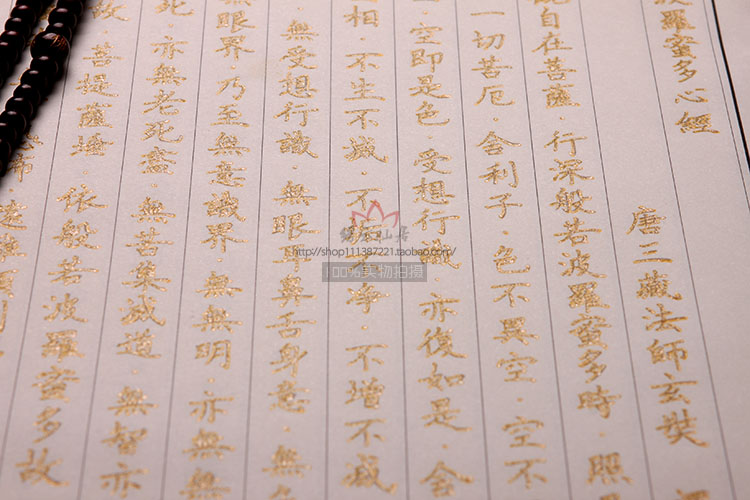 波羅蜜多心經
唐三藏法師玄奘
自在菩薩·行深般若波羅蜜多時·照
一切苦厄·舍利子·色不異空·空不
空即是色·受想行識·亦復如是·舍
相·不生不滅·不垢不淨·不增不減
·無受想行識·無眼耳鼻舌身意·無
無眼界乃至無意識界·無無明·亦無無
死·亦無老死盡·無苦集滅道·無智亦
故·菩提薩埵·依般若波羅蜜多故
http://shop111387221.taobao.com/
100%实物拍摄